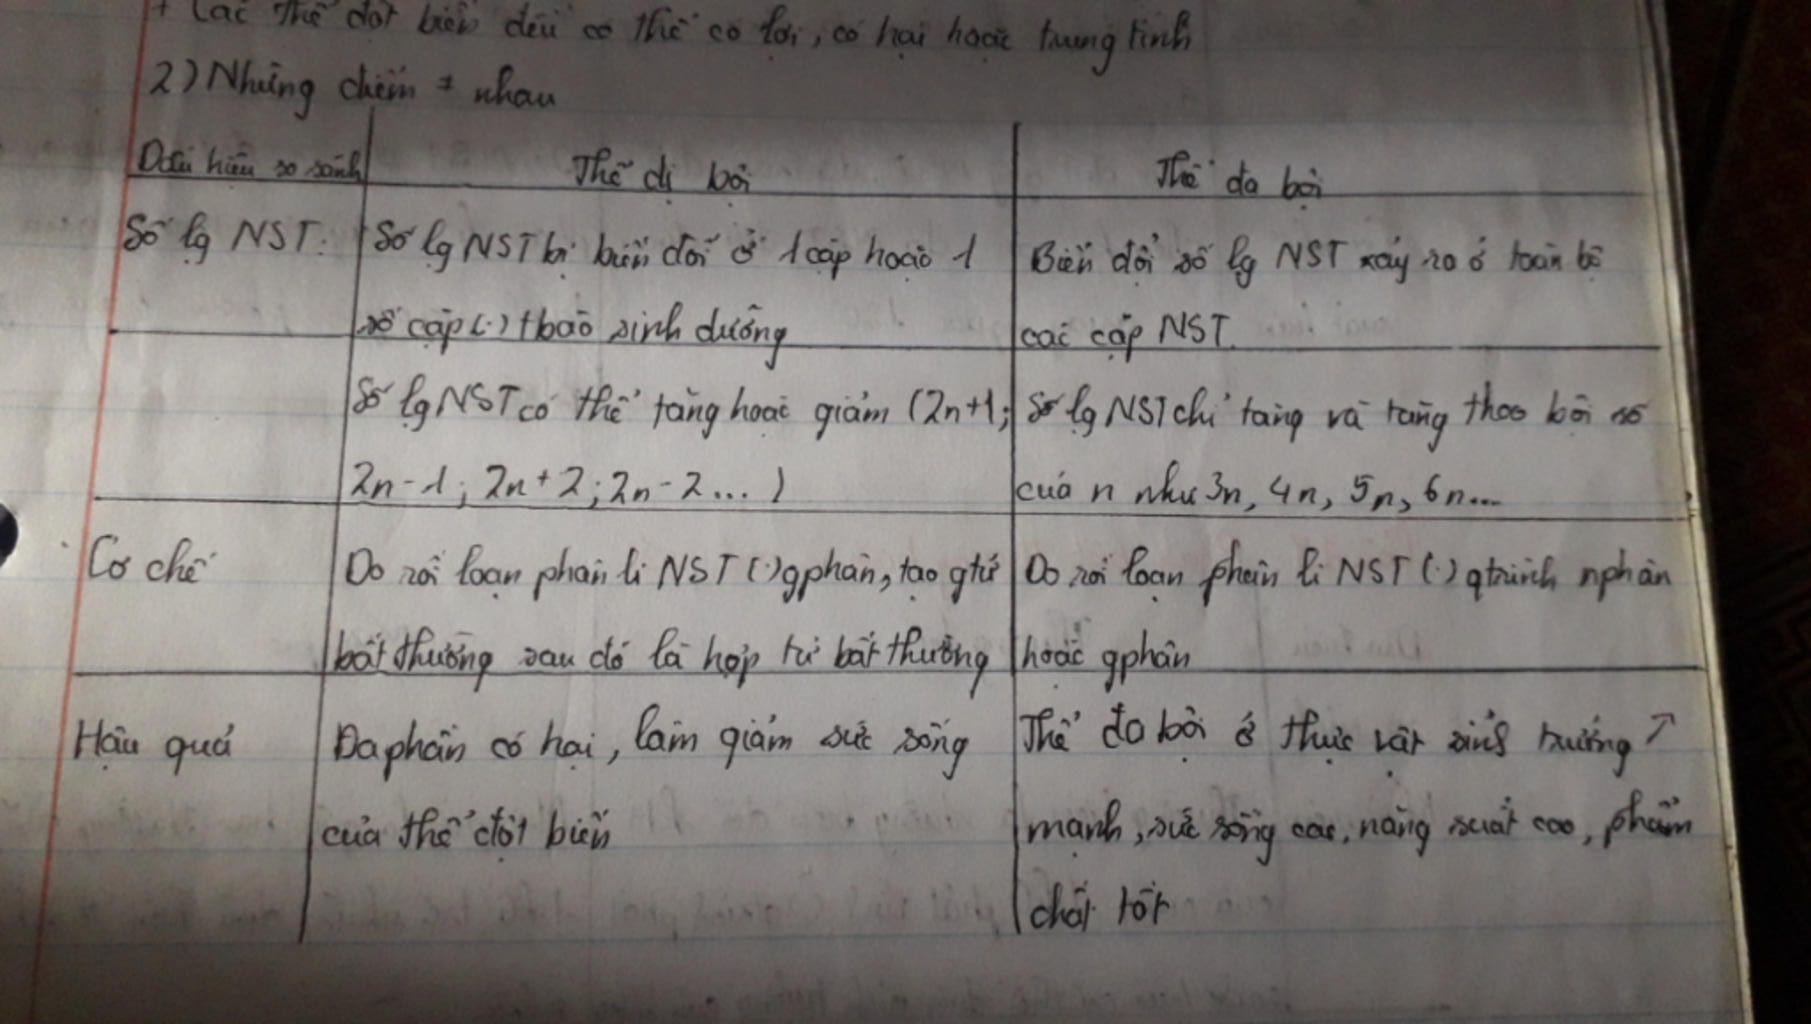 + Các thể đột biến đều có thể có lợi, có hại hoặc trung tính
2) Những điểm ≠ nhau
Dấu hiệu so sánh
Thể dị bội
Thể đa bội
Số lg NST:
Số lg NST bị biến đổi ở 1 cặp hoặc 1
số cặp (.) tbào sinh dưỡng
Biến đổi số lg NST xảy ra ở toàn bộ
các cặp NST.
Số lg NST có thể tăng hoặc giảm (2n+1;
2n-1; 2n+2; 2n-2...)
Số lg NST chỉ tăng và tăng theo bội số
của n như 3n, 4n, 5n, 6n...
Cơ chế
Do rối loạn phân li NST (.) gphân, tạo gtử
bất thường sau đó là hợp tử bất thường
Do rối loạn phân li NST (.) qtrình nphân
hoặc gphân
Hậu quả
Đa phần có hại, làm giảm sức sống
của thể đột biến
Thể đa bội ở thực vật sinh trưởng ↗
mạnh, sức sống cao, năng suất cao, phẩm
chất tốt